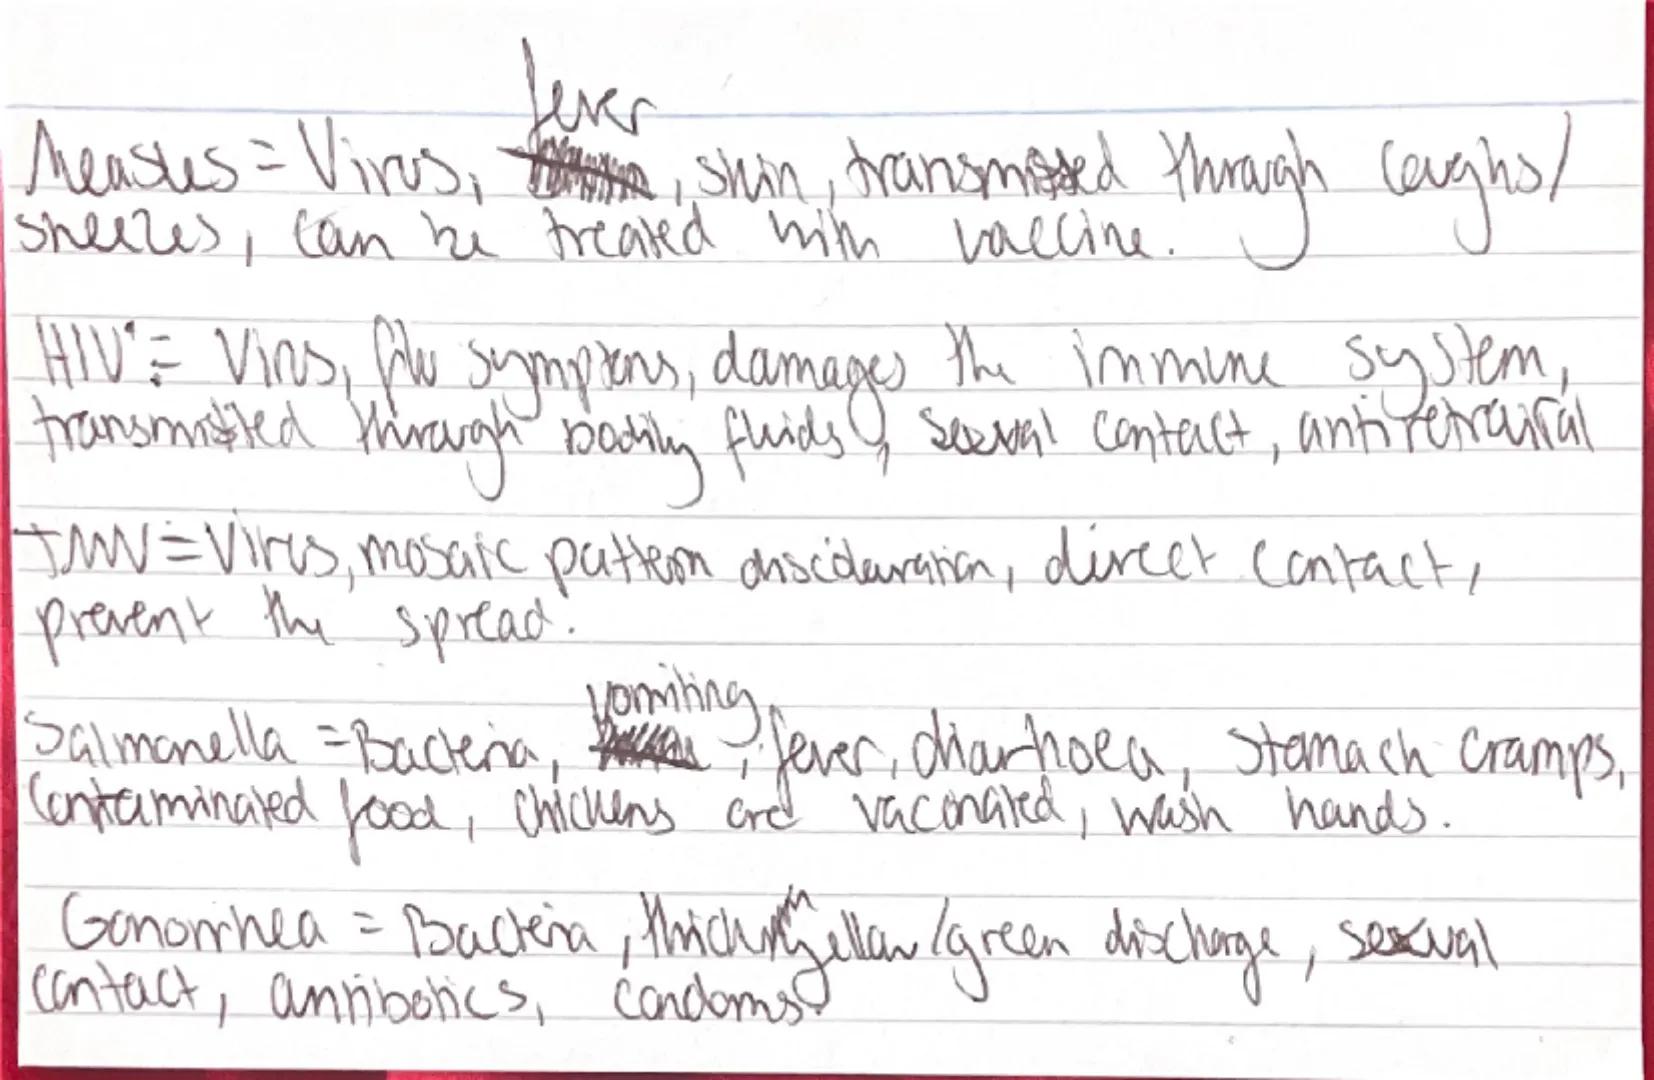 fever
Measles = Virus, , skin, transmitted through coughs/
sneezes, can be treated with vaccine.
HIV = Virus, flu symptoms, damages the immune system,
transmitted through bodily fluids, sexual contact, antiretroviral
TMV = Virus, mosaic pattern discolouration, direct contact,
prevent the spread.
vomiting
Salmonella = Bacteria, , fever, diarrhoea, stomach cramps,
contaminated food, chickens are vaccinated, wash hands.
Gonorrhea = Bacteria, thick yellow/green discharge, sexual
contact, antibotics, condoms